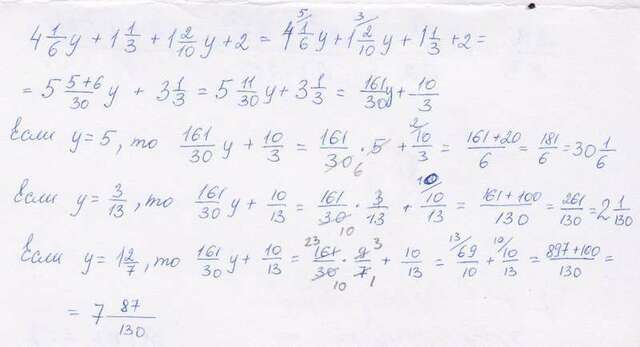 4 1/6 y + 1 1/3 + 1 2/10 y + 2 = 4 5/ 1/6 y + 1 3/ 2/10 y + 1 1/3 + 2 =
= 5 5+6/30 y + 3 1/3 = 5 11/30 y + 3 1/3 = 161/30 y + 10/3
Если y = 5, то 161/30 y + 10/3 = 161/30 6 · 5 + 2/ 10/3 = 161+20/6 = 181/6 = 30 1/6
Если y = 3/13, то 161/30 y + 10/13 = 161/30 10 · 3/13 + 10/ 10/13 = 161+100/130 = 261/130 = 2 1/130
Если y = 1 2/7, то 161/30 y + 10/13 = 23 161/30 10 · 9/7 3 1 + 10/13 = 13/ 69/10 + 10/ 10/13 = 897+100/130 =
= 7 87/130